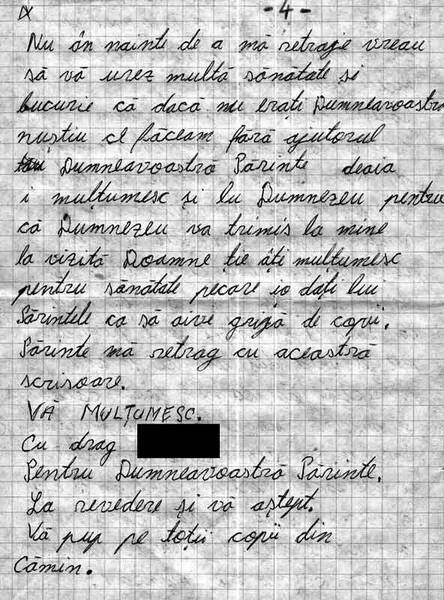 IX -4-
Nu în nainte de a mă retraje vreau
să vă urez multă sănătate si
bucurie că dacă nu erați Dumneavoastră
nuștiu ce făceam fără ajutorul
Dumneavoastră Părinte deaia
i mulțumesc și lu Dumnezeu pentru
că Dumnezeu va trimis la mine
la vizită Doamne ție âți mulțumesc
pentru sănătate pecare io dați lui
Părintele ca să aive grijă de copii.
Părinte mă retrag cu aceastră
scrisoare.
VĂ MULȚUMESC.
Cu drag
Pentru Dumneavoastră Părinte.
La revedere și vă aștept.
Vă pup pe toții copii din
Cămin.